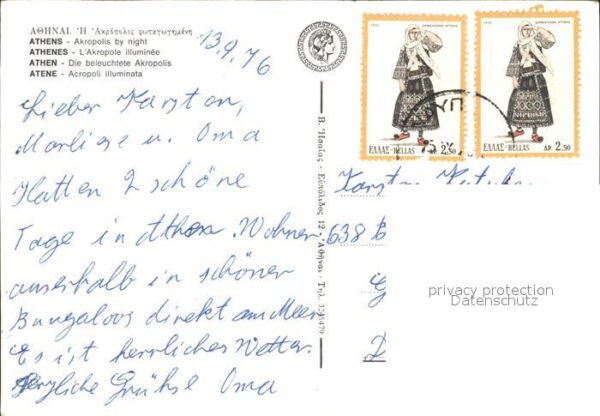 ΑΘΗΝΑΙ. Ἡ Ἀκρόπολις φωταγωγημένη
ATHENS - Akropolis by night
ATHENES - L'Akropole illuminée
ATHEN - Die beleuchtete Akropolis
ATENE - Acropoli illuminata
13.9.76
Lieber Karsten,
Marliese u. Oma
Hatten 2 schöne
Tage in Athen. Wohnen
ausserhalb in schönen
Bungaloos direkt am Meer
Es ist herrliches Wetter.
Herzliche Grühse Oma
Ἀθῆναι - Τηλ.
ΕΛΛΑΣ-HELLAS ΔΡ. 2.50
ΕΛΛΑΣ-HELLAS ΔΡ. 2.50
Karsten
638 B
G
D
privacy protection
Datenschutz